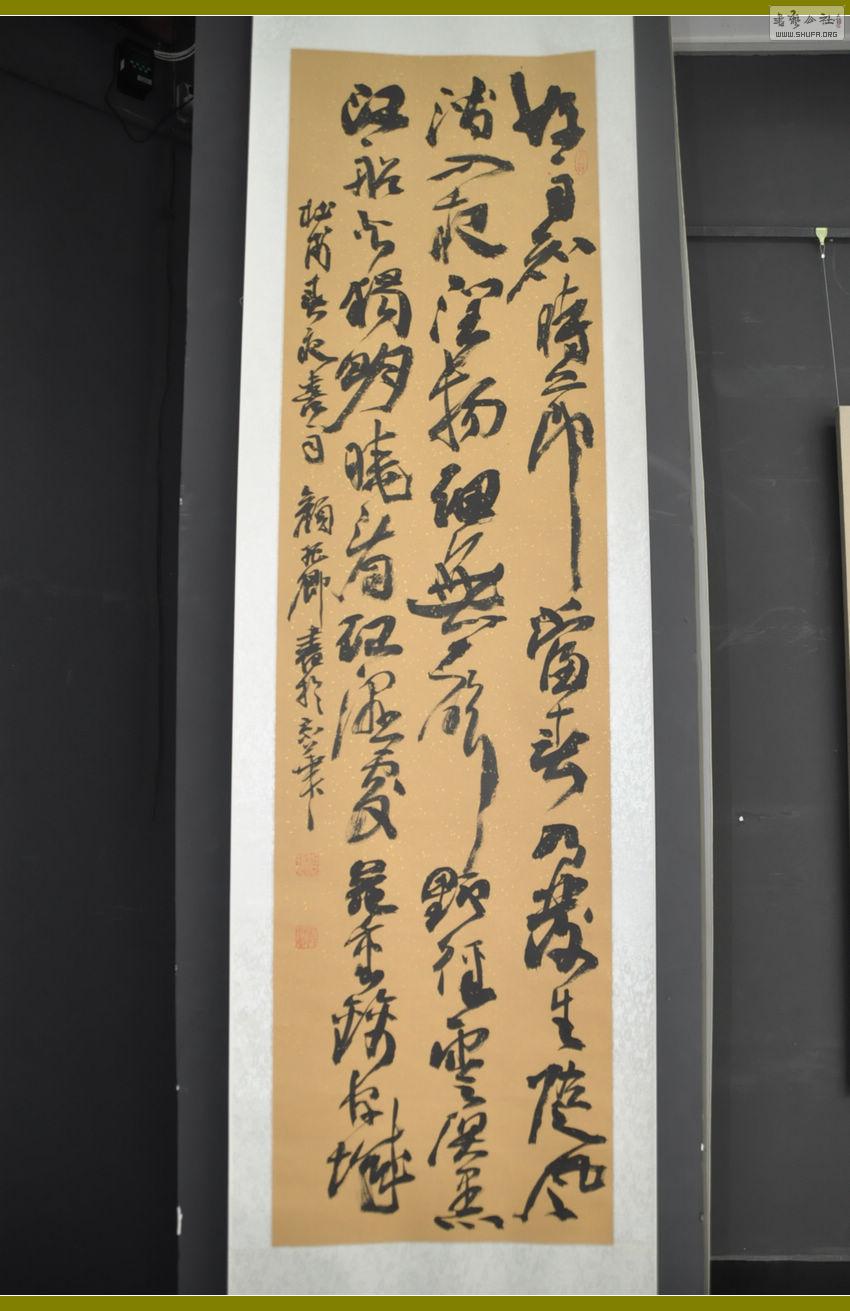 好雨知時節當春乃發生隨風
潛入夜潤物細無聲野徑雲俱黑
江船火獨明曉看紅濕處花重錦官城
杜甫春夜喜雨 顏卿書於京華
書藝公社
WWW.SHUFA.ORG